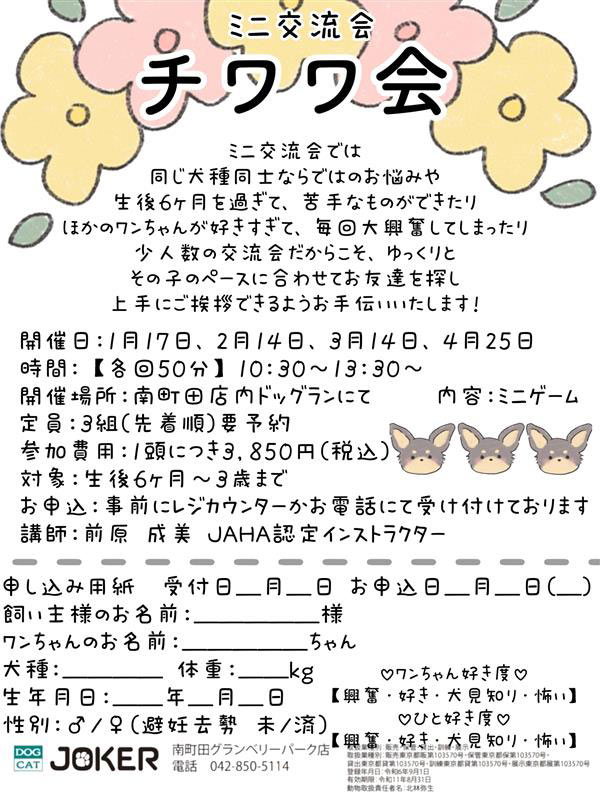 ミニ交流会
チワワ会
ミニ交流会では
同じ犬種同士ならではのお悩みや
生後6ヶ月を過ぎて、苦手なものができたり
ほかのワンちゃんが好きすぎて、毎回大興奮してしまったり
少人数の交流会だからこそ、ゆっくりと
その子のペースに合わせてお友達を探し
上手にご挨拶できるようお手伝いいたします!
開催日:1月17日、2月14日、3月14日、4月25日
時間:【各回50分】10:30〜13:30〜
開催場所:南町田店内ドッグランにて 内容:ミニゲーム
定員:3組(先着順)要予約
参加費用:1頭につき3,850円(税込)
対象:生後6ヶ月〜3歳まで
お申込:事前にレジカウンターかお電話にて受け付けております
講師:前原 成美 JAHA認定インストラクター
申し込み用紙 受付日__月__日 お申込日__月__日(__)
飼い主様のお名前:__________様
ワンちゃんのお名前:__________ちゃん
犬種:________ 体重:____kg
生年月日:____年__月__日
性別:♂/♀(避妊去勢 未/済)
♡ワンちゃん好き度♡
【興奮・好き・犬見知り・怖い】
♡ひと好き度♡
【興奮・好き・人見知り・怖い】
DOG CAT JOKER 南町田グランベリーパーク店
電話 042-850-5114
取扱業種別:販売・保管・貸出・訓練・展示
取扱業種:販売東京都販第103570号・保管東京都保第103570号・
貸出東京都貸第103570号・訓練東京都訓第103570号・展示東京都展第103570号
登録年月日:令和6年9月1日
有効期限:令和11年8月31日
動物取扱責任者名:北林弥生